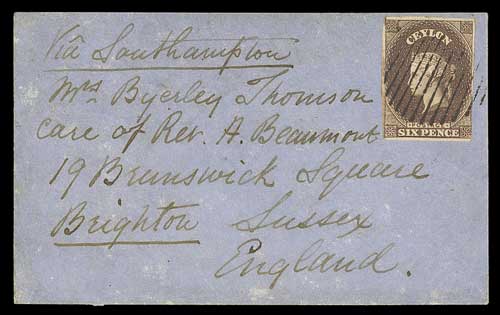 Viâ Southampton
CEYLON
POSTAGE
SIX PENCE
Mrs. Byerley Thomson
care of Rev. A. Beaumont
19 Brunswick Square
Brighton Sussex
England.